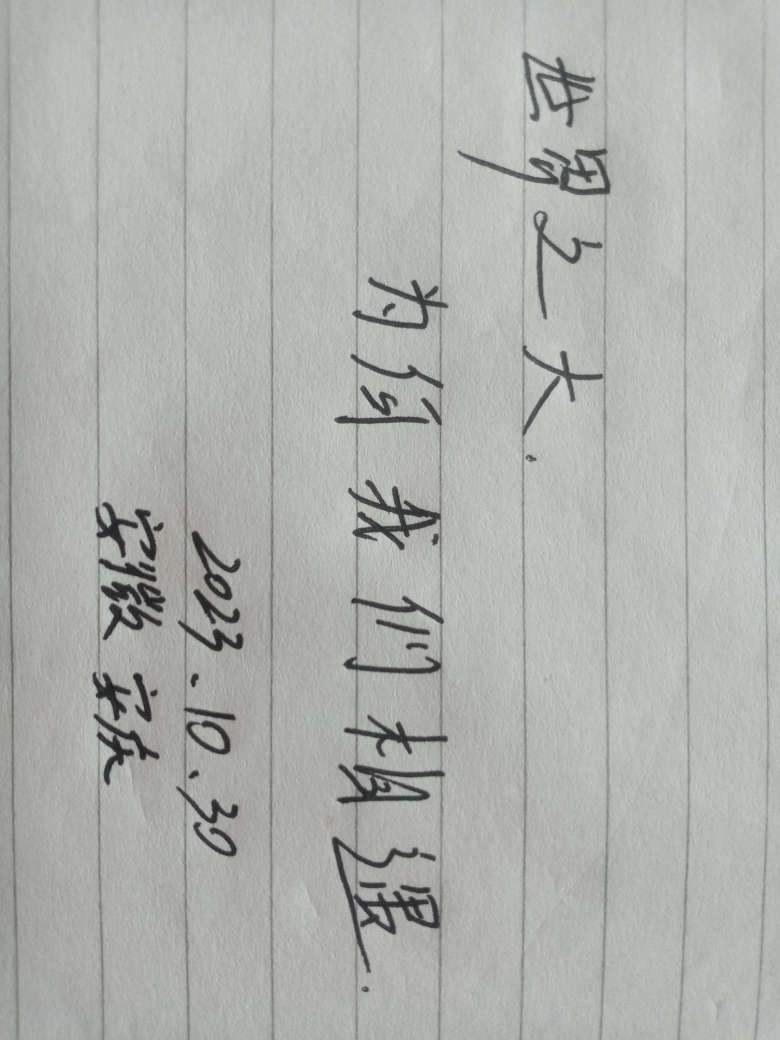 世界之大.
为何我们相遇.
2023.10.30
安徽 安庆